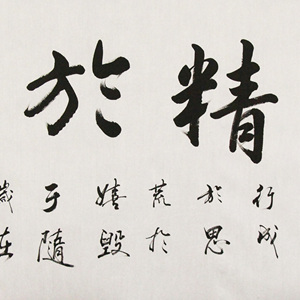 精於
行成
於思
荒於
嬉毀
于隨
歲在